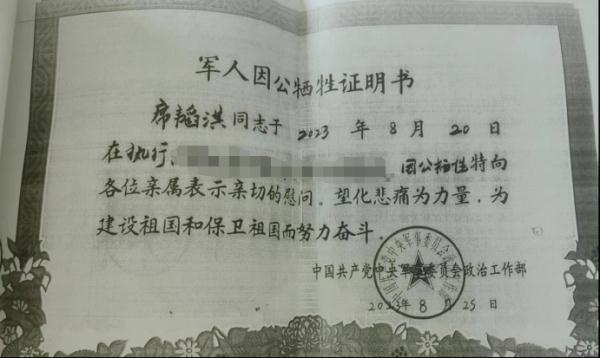 军人因公牺牲证明书
席韬淇同志于 2023 年 8 月 20 日
在执行、 因公牺牲特向
各位亲属表示亲切的慰问。望化悲痛为力量，为
建设祖国和保卫祖国而努力奋斗。
中国共产党中央军事委员会政治工作部
2023年8月25日